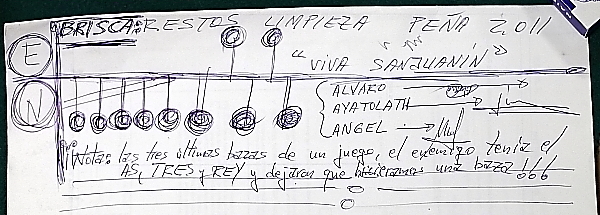 BRISCA: RESTOS LIMPIEZA PEÑA 2.011
E
"VIVA SANJUANÍN"
N
ALVARO
AYATOLATH
ANGEL
¡¡Nota: las tres últimas bazas de un juego, el enemigo tenía el
AS, TRES y REY y dejaron que hicieramos una baza!!!